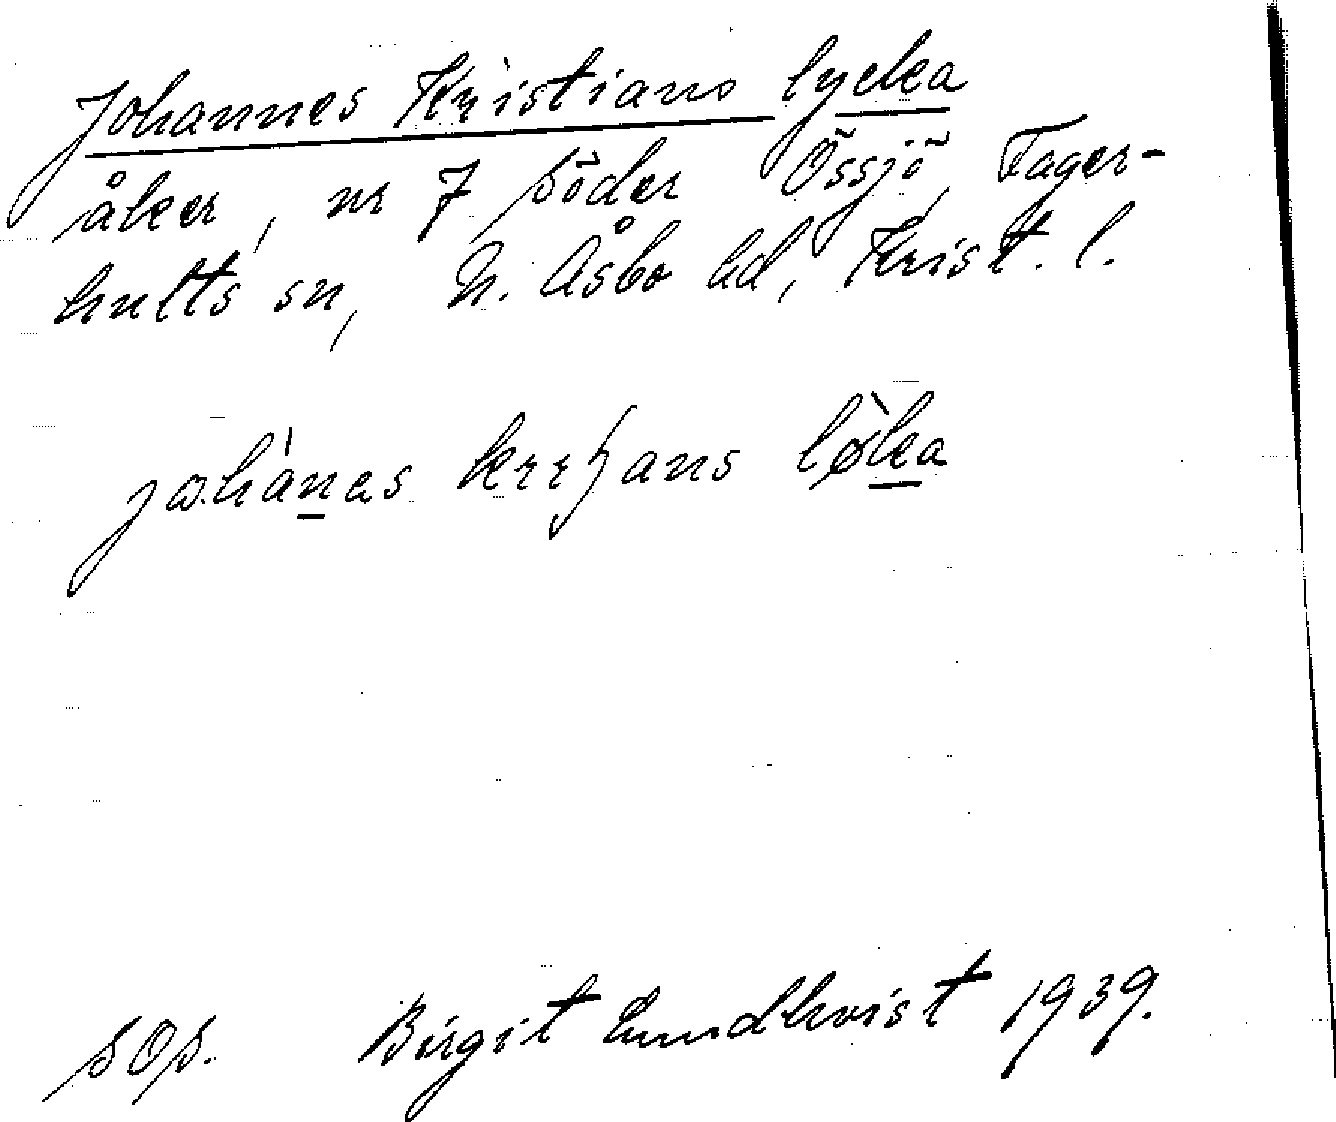 Johannes Kristians lycka
åker, nr 7 Söder Össjö, Fager-
hults sn, N. Åsbo hd, Krist. l.
johànes lø̀ka
SOS. Birgit Lundkvist 1939.